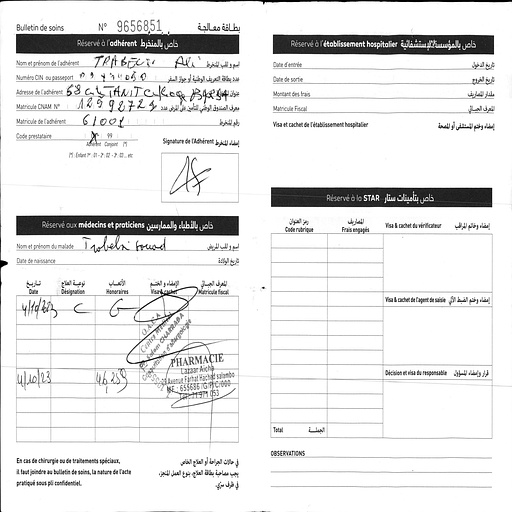 Bulletin de soins N° 9656851 بطاقة معالجة
Réservé à l'adhérent خاص بالمنخرط
Nom et prénom de l'adhérent TRABELSI Ali اسم و لقب المنخرط
Numéro CIN ou passeport عدد بطاقة التعريف الوطنية أو جواز السفر
Adresse de l'adhérent
Matricule CNAM N°
Matricule de l'adhérent 61001 رقم المنخرط
Code prestataire 99
Adhérent Conjoint (*)
(*) Enfant N° : 01 - 2° : 02 - 3° : 03 .. etc
Signature de l'Adhérent إمضاء المنخرط
Réservé aux médecins et praticiens خاص بالأطباء والممارسين
Nom et prénom du malade Trabelsi souad اسم و لقب المريض
Date de naissance تاريخ الولادة
تاريخ نوعية العلاج الأتعاب الإمضاء و الختم المعرف الجبائي
Date Désignation Honoraires Visa & cachet Matricule fiscal
4/10/2023 C G
4/10/23 46,259
PHARMACIE
Lazaar Aicha
Avenue Farhat Hached salambo
MF : 655686 /G/P/C/000
Tel : 71 971 053
En cas de chirurgie ou de traitements spéciaux,
il faut joindre au bulletin de soins, la nature de l'acte
pratiqué sous pli confidentiel.
في حالات الجراحة أو العلاج الخاص
يجب مصاحبة بطاقة العلاج، بنوع العمل المنجز،
في ظرف سري.
Réservé à l'établissement hospitalier خاص بالمؤسسة الإستشفائية
Date d'entrée تاريخ الدخول
Date de sortie تاريخ الخروج
Montant des frais مقدار المصاريف
Matricule Fiscal المعرف الجبائي
Visa et cachet de l'établissement hospitalier إمضاء وختم المستشفى أو المصحة
Réservé à la STAR خاص بتأمينات ستار
رمز العنوان المصاريف
Code rubrique Frais engagés
Visa & cachet du vérificateur إمضاء وخاتم المراقب
Visa & cachet de l'agent de saisie إمضاء وختم الضبط الآلي
Décision et visa du responsable قرار وإمضاء المسؤول
Total الجملة
OBSERVATIONS